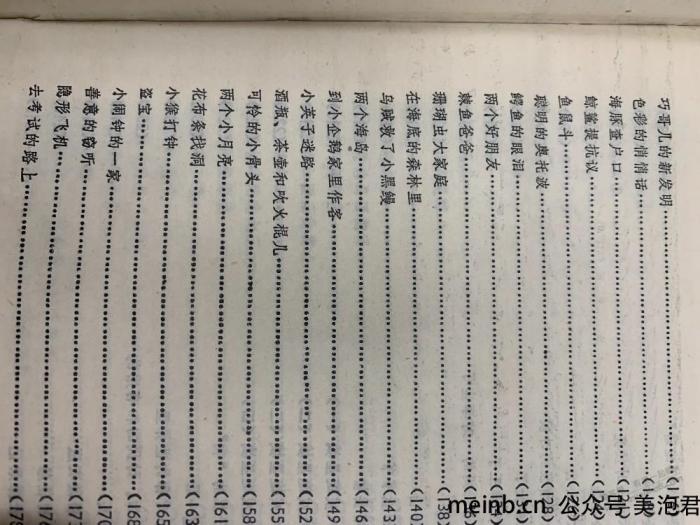 巧哥儿的新发明
色彩的悄悄话
海豚查户口
鲸鲨提抗议
鱼鼠斗
聪明的奥托波
鳄鱼的眼泪
两个好朋友
棘鱼爸爸……(138
珊瑚虫大家庭
在海底的森林里……(140
乌贼救了小黑鳗……(143
两个海岛……(146
到小企鹅家里作客……(149
小英子迷路……(152
酒瓶、茶壶和吹火棍儿……(155
可怜的小骨头……(158
两个小月亮……(161
花布条找洞……(163
小猴打钟……(165
盗宝……(168
小闹钟的一家……(170
善意的窃听……(173
隐形飞机……(176
去考试的路上……(179
meinb.cn 公众号 美泡君